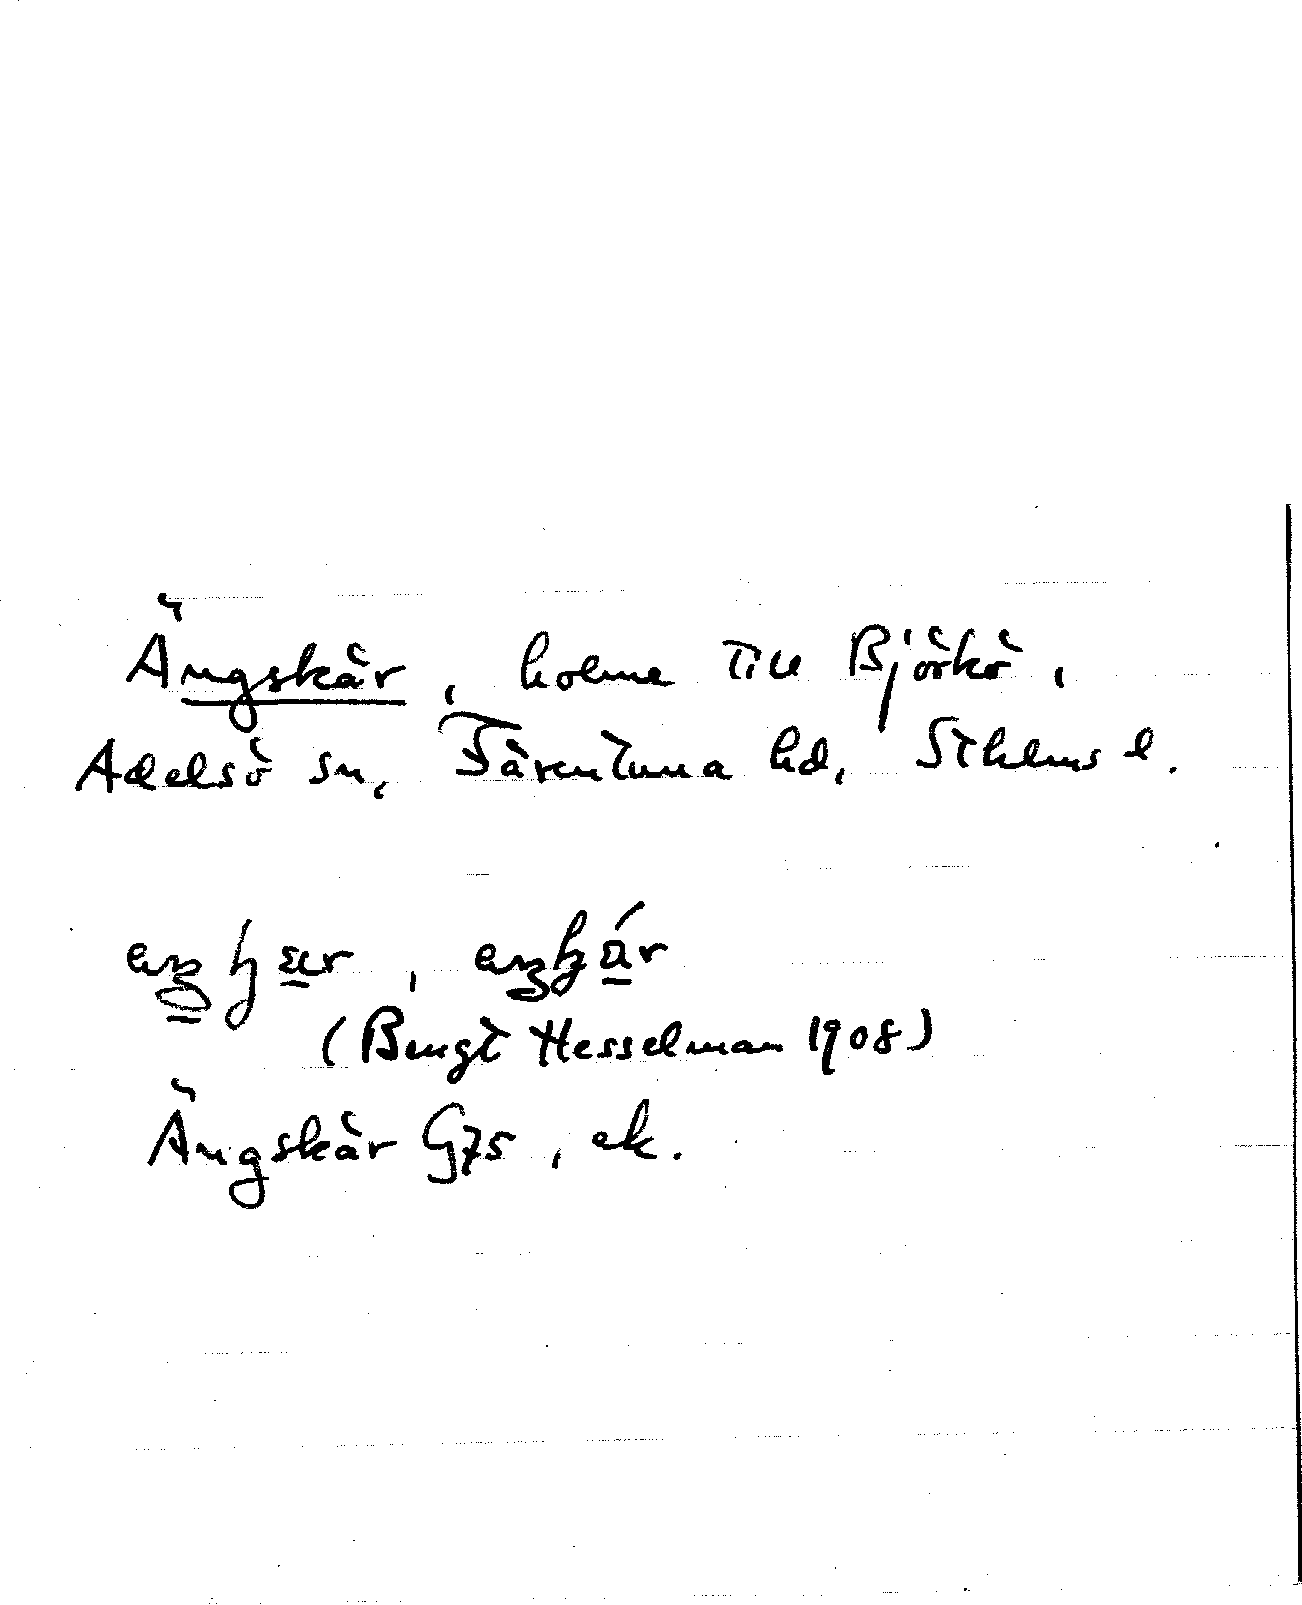 Ängskär, holme till Björkö,
Adelsö sn, Färentuna hd, Sthlms l.
(Bengt Hesselman 1908)
Ängskär G75, ek.